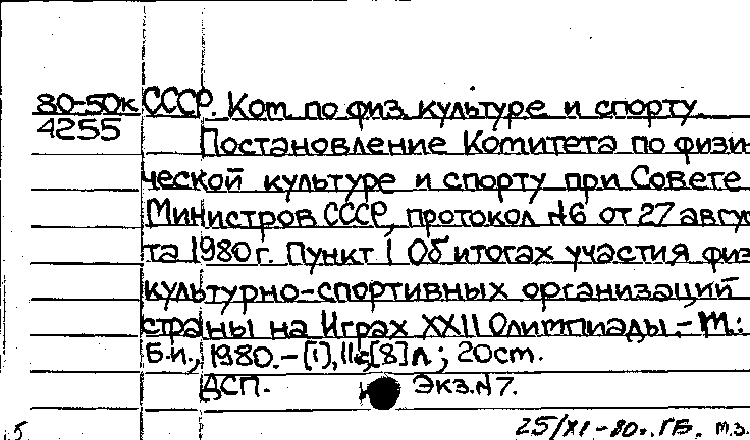 80-50к СССР. Ком. по физ. культуре и спорту.
4255 Постановление Комитета по физи-
ческой культуре и спорту при Совете
Министров СССР, протокол №6 от 27 авгус-
та 1980 г. Пункт 1 Об итогах участия физ
культурно-спортивных организаций
страны на Играх XXII Олимпиады.- М.:
Б.и., 1980.- [1], 11, [8] л; 20 см.
ДСП. Экз. №7.
25/XI-80г. ГБ. м.з.